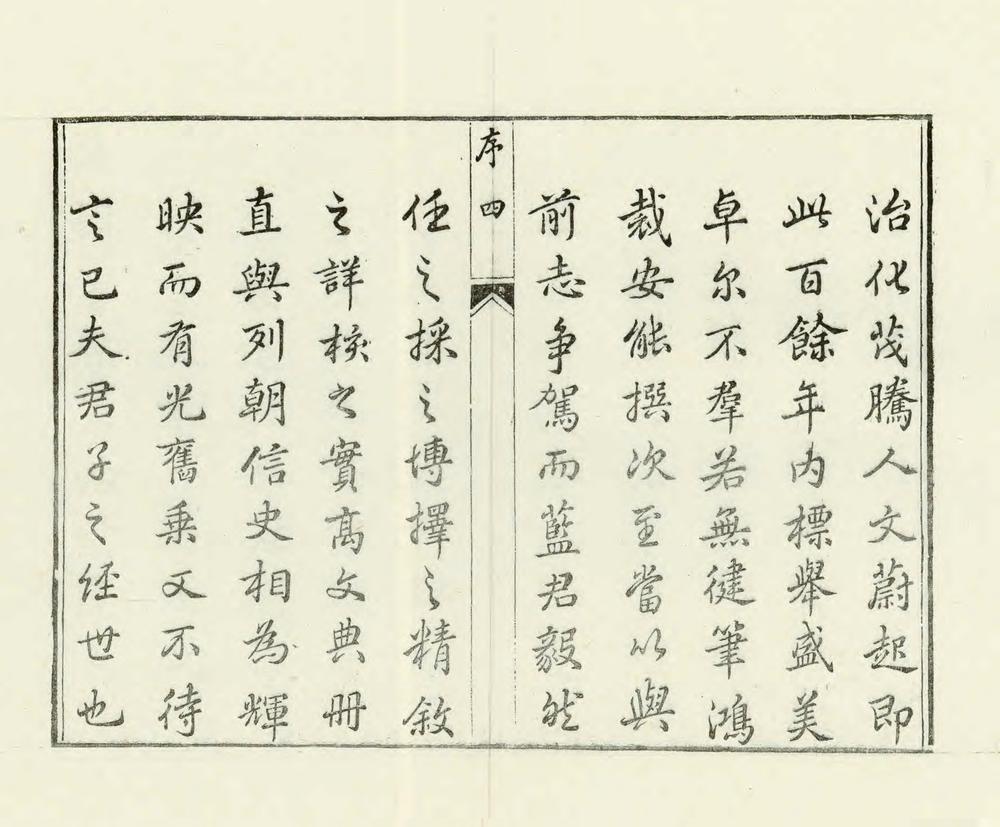 治化茂騰人文蔚起即
此百餘年内標舉盛美
卓尔不羣若無健筆鴻
裁安能撰次至當以與
前志争駕而藍君毅然
序四
任之採之博擇之精敘
之詳核之實高文典冊
直與列朝信史相為輝
映而有光舊乗又不待
言已夫君子之經世也